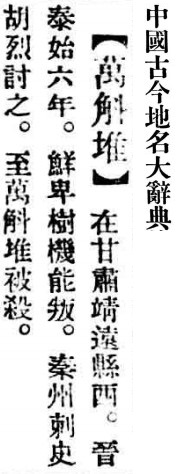 中國古今地名大辭典
【萬斛堆】在甘肅靖遠縣西。晉
泰始六年。鮮卑樹機能叛。秦州刺史
胡烈討之。至萬斛堆被殺。